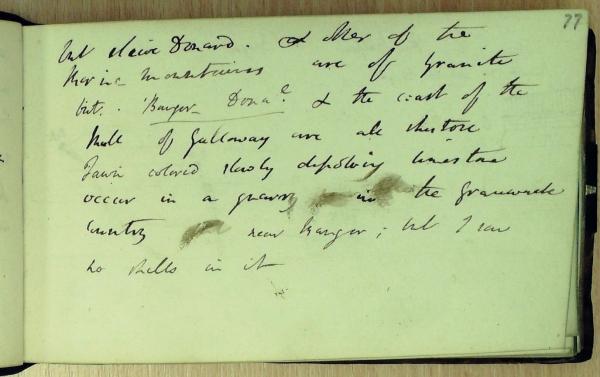 77
but slaive Donard. & other of the
Marin mountains are of Granite
but. Bangor Dona.l & the coast of the
Mull of Galloway are all
Fawn colored slowly dissolving limestone
occur in a quarry in the Grauwack
Country near Bangor; but I saw
no shells in it